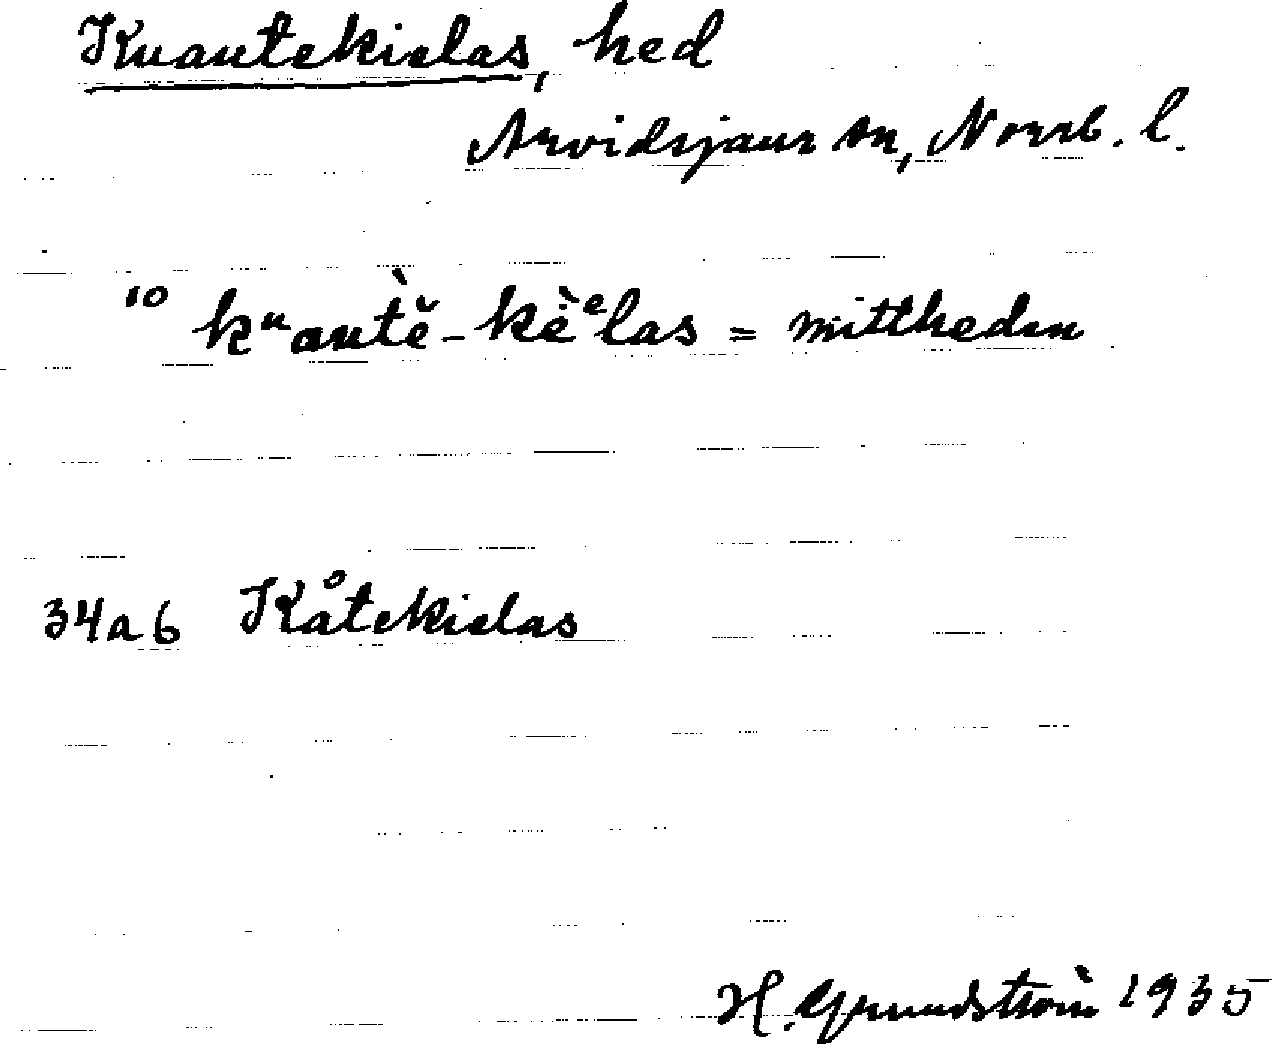 Kuautekielas, hed
Arvidsjaur sn, Norrb. l.
10 kᵘautě̀-kè̤ᵉlas = mittheden
34a6 Kåtekielas
H. Grundström 1935